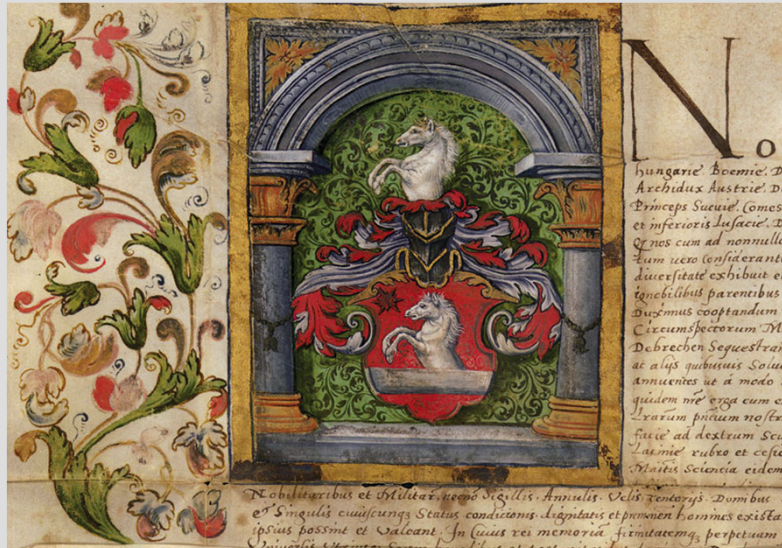 No
hungarie Boemie. D
Archidux Austrie. D
Princeps Sueuie. Comes
et inferioris Lusacie. D
nos cum ad nonnull
tum uero considerant
diuersitate exhibuit e
ignobilibus parentibus
Duximus cooptandum
Circumspectorum M
Debrechen Sequestran
ac alijs quibusuis
annuentes ut a modo
quidem nre erga eum e
Lrarum pncium nostr
facie ad dextrum
Lacinie rubro et
Maitis Sciencia eidem
Nobilitaribus et Militar necnõ Sigillis. Annulis. Velis Zentorijs. Domibus
et Singulis cuiuscunqz Status condicionis. dignitatis et homines exista
ipsius possint et Valeant. In Cuius rei memoriã firmitatemqz perpetuam